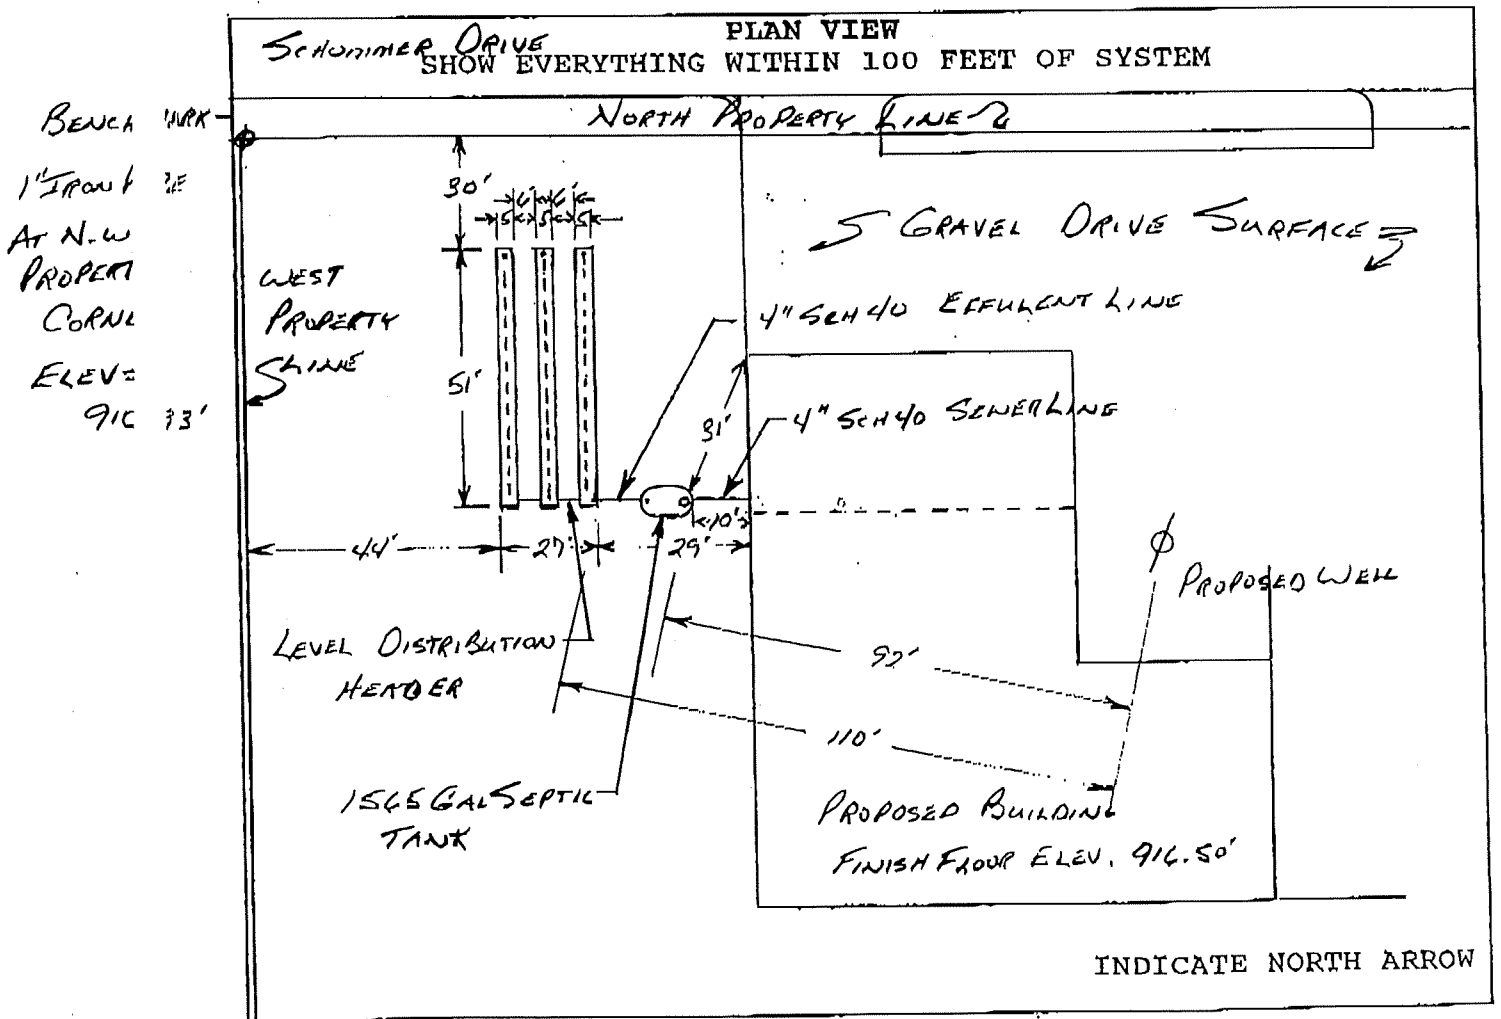 SCHUMMER DRIVE
PLAN VIEW
SHOW EVERYTHING WITHIN 100 FEET OF SYSTEM
NORTH PROPERTY LINE
BENCH MARK
1" IRON
AT N.W
PROPERT
CORN
ELEV=
30'
6' 6'
5 5 5
GRAVEL DRIVE SURFACE
WEST
PROPERTY
LINE
4" SCH 40 EFFULENT LINE
51'
31'
4" SCH 40 SEWER LINE
10'
44'
27'
29'
PROPOSED WELL
LEVEL DISTRIBUTION
HEADER
110'
1565 GAL SEPTIC
TANK
PROPOSED BUILDING
FINISH FLOOR ELEV. 916.50'
INDICATE NORTH ARROW